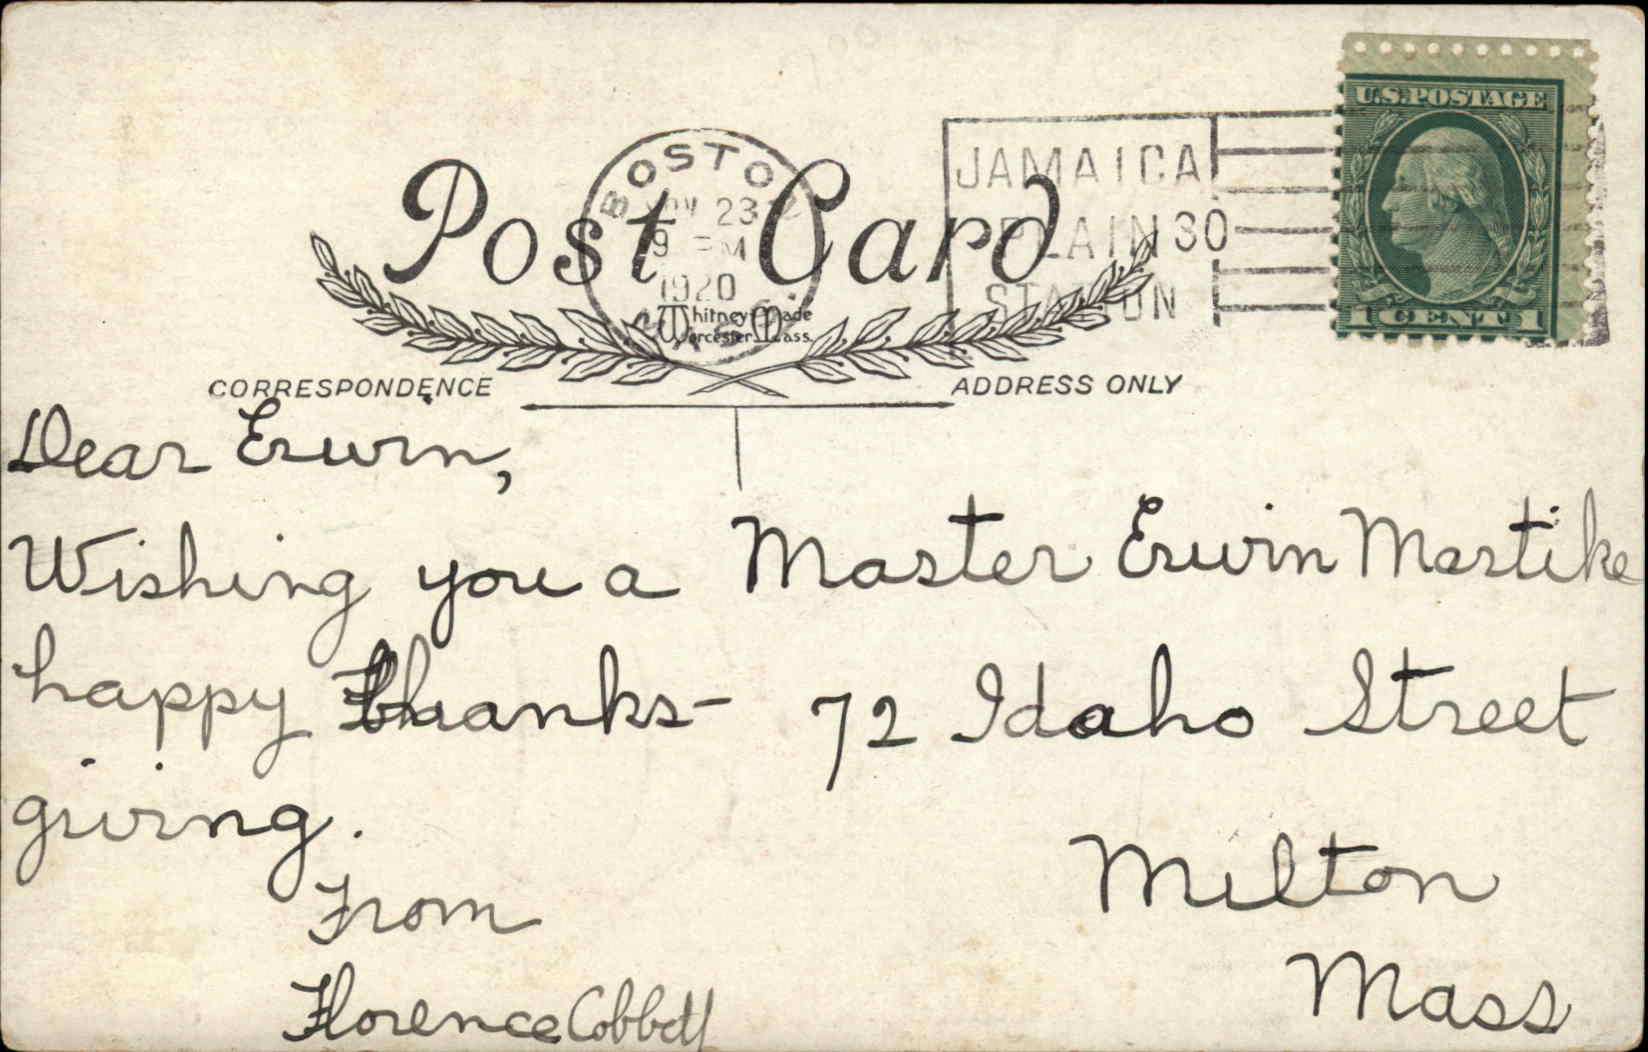 U.S. POSTAGE
1 CENT 1
BOSTON
NOV 23
9 PM
1920
JAMAICA
PLAIN 30
STATION
Post Card
Whitney Made
Worcester Mass.
CORRESPONDENCE
ADDRESS ONLY
Dear Erwin,
Wishing you a
happy Thanks-
giving.
From
Florence Cobbett
Master Erwin Mastike
72 Idaho Street
Milton
Mass